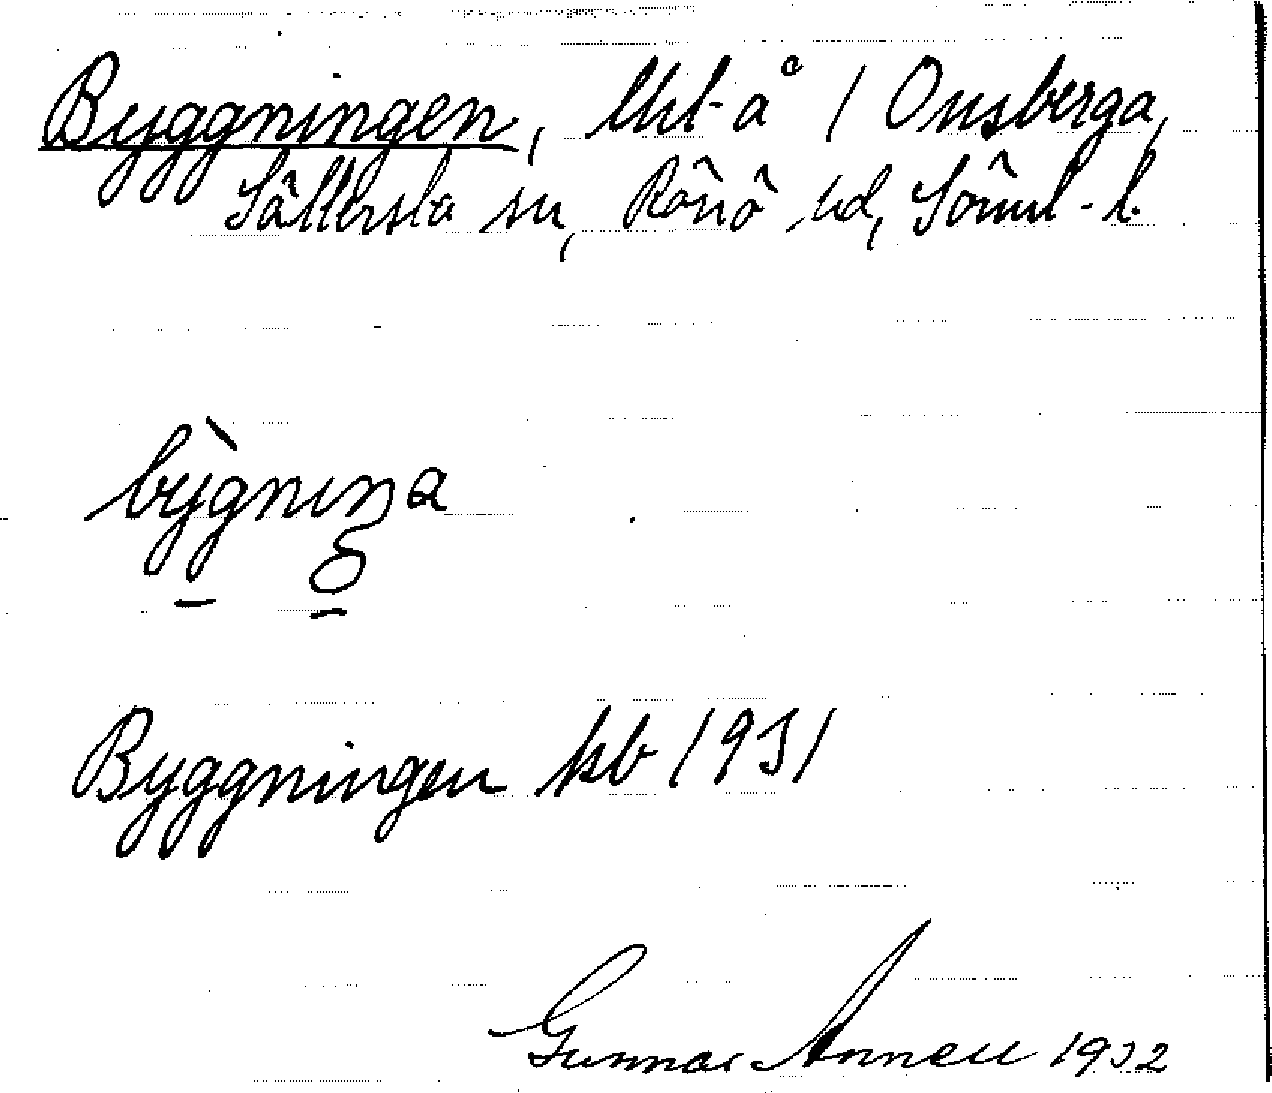 Byggningen, lht å / Onsberga,
Sättersta sn, Rönö hd, Söml. l.
bỳgniŋa
Byggningen kb 1931
Gunnar Annell 1932